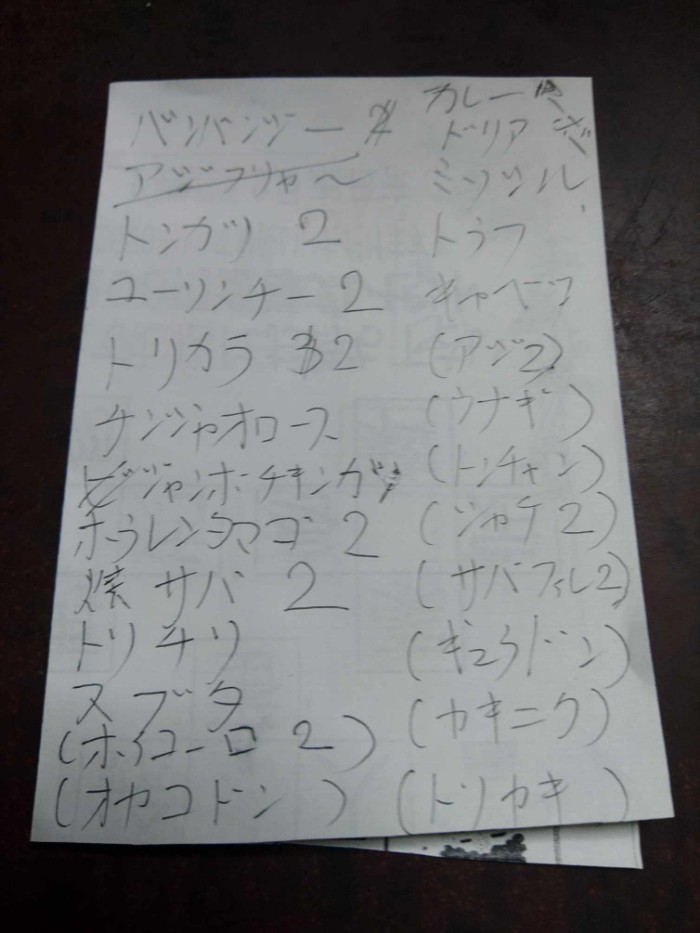 バンバンジー
アジフライ
トンカツ 2
ユーリンチー 2
トリカラ 2
チンジャオロース
ジャンボチキンカツ
ホウレンタマゴ 2
焼サバ 2
トリチリ
スブタ
(ホイコーロ 2)
(オヤコドン)
カレー
ドリア
トウフ
キャベツ
(アジフ)
(ウナギ)
(トンチャン)
(シャケ2)
(サバフィレ2)
(ギュウドン)
(ヤキニク)
(トリヤキ)